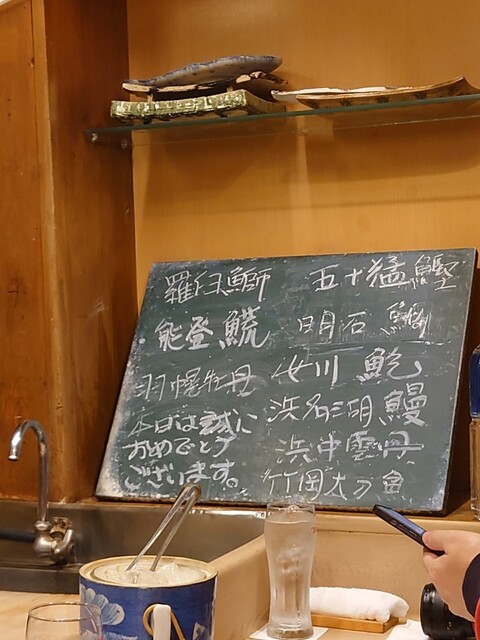 羅臼鰤
能登𩺊
羽幌牡丹
本日は誠に
おめでとう
ございます。
五十猛 鰹
明石
女川 鮑
浜名湖 鰻
浜中雲丹
竹岡太刀魚